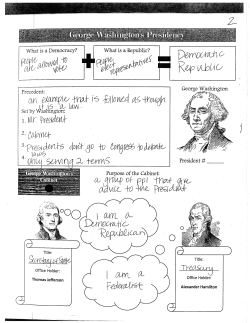 2
George Washington's Presidency
What is a Democracy?
People are allowed to vote
+
What is a Republic?
People elect representatives
=
Democratic Republic
Precedent:
an example that is followed as though
it is a law
Set by Washington:
1. Mr President
2. Cabinet
3. Presidents don't go to Congress to debate
laws
4. only serving 2 terms
George Washington
President #
George Washington's
Cabinet
Purpose of the Cabinet:
a group of ppl that give
advice to the President
I am a
Democratic
Republican
Title:
Secretary of State
Office Holder:
Thomas Jefferson
I am a
Federalist
Title:
Treasury
Office Holder:
Alexander Hamilton